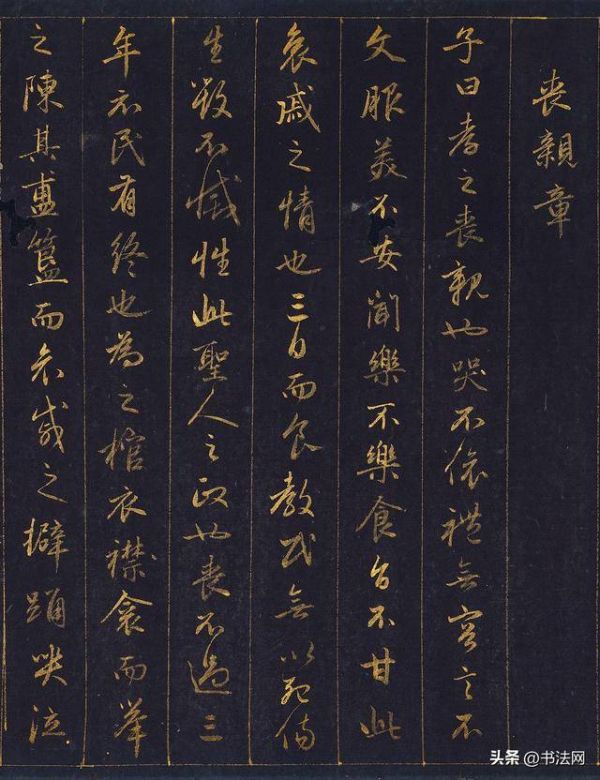 喪親章
子曰孝之喪親也哭不偯禮無容言不
文服美不安聞樂不樂食旨不甘此
哀慼之情也三日而食教民無以死傷
生毀不滅性此聖人之政也喪不過三
年示民有終也為之棺衣襟衾而舉
之陳其盙簋而哀戚之擗踊哭泣
头条 @书法网